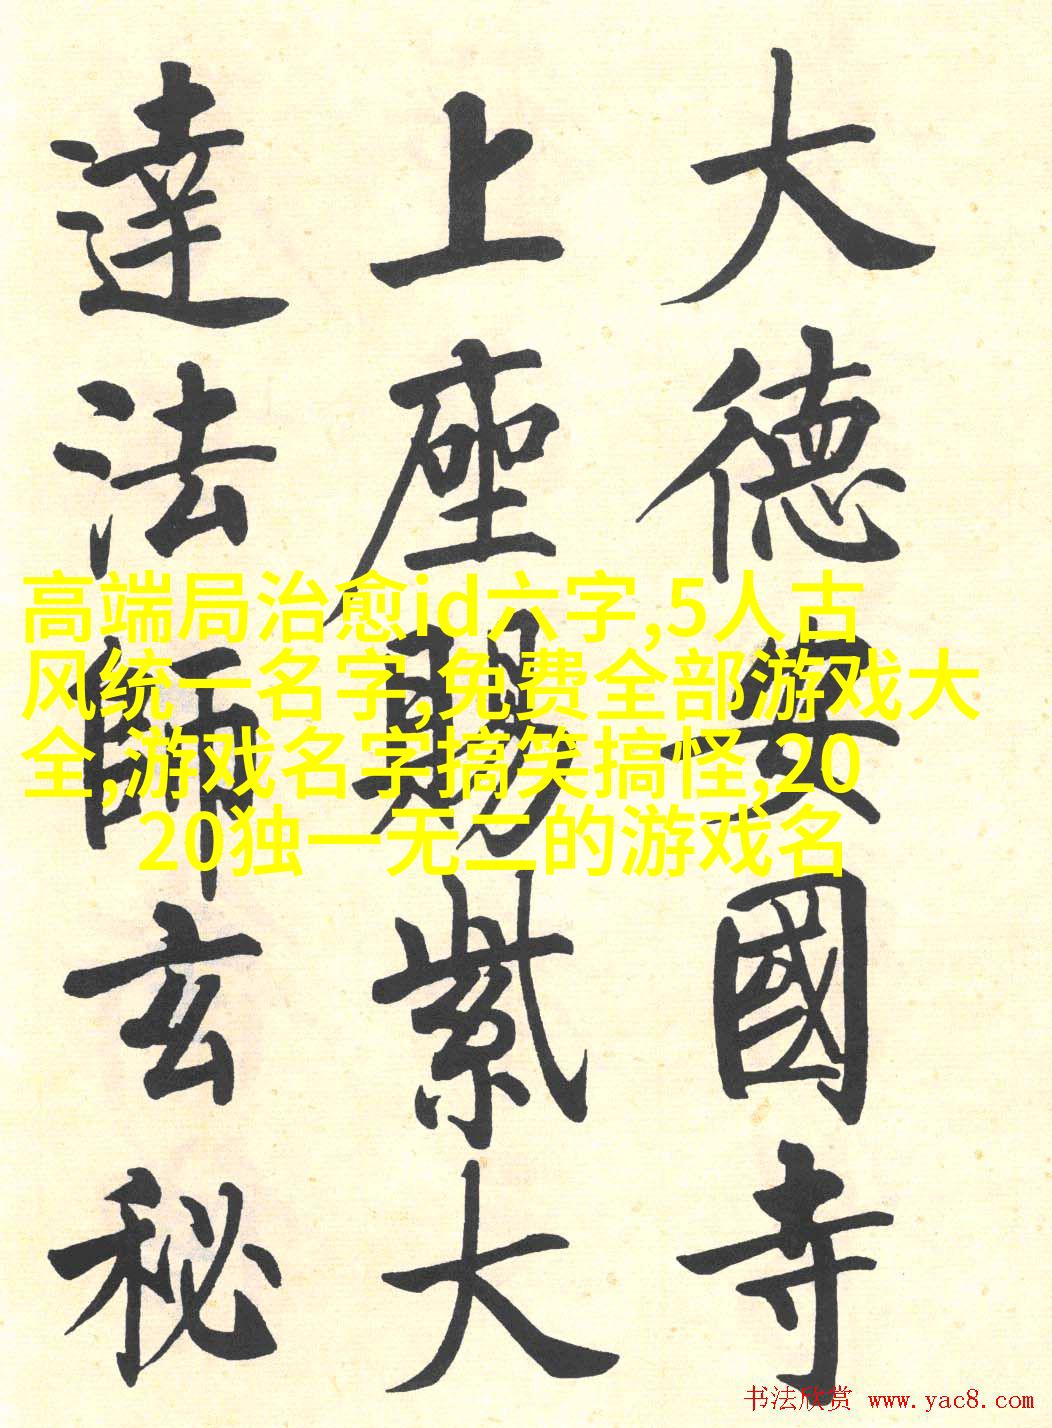 大德安國寺
上座賜紫大
達法師玄秘
高端局治愈id六字,5人古
风统一名字,免费全部游戏大
全,游戏名字搞笑搞怪,20
20独一无二的游戏名
书法欣赏 www.yac8.com